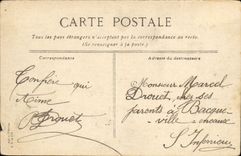 CARTE POSTALE
Tous les pays étrangers n'acceptent pas la correspondance au recto.
(Se renseigner à la poste.)
Correspondance
Adresse du destinataire
Confrère qui
aime
Drouet
Monsieur Marcel
Drouet, chez ses
parents à Bacque-
ville
S. Inférieure